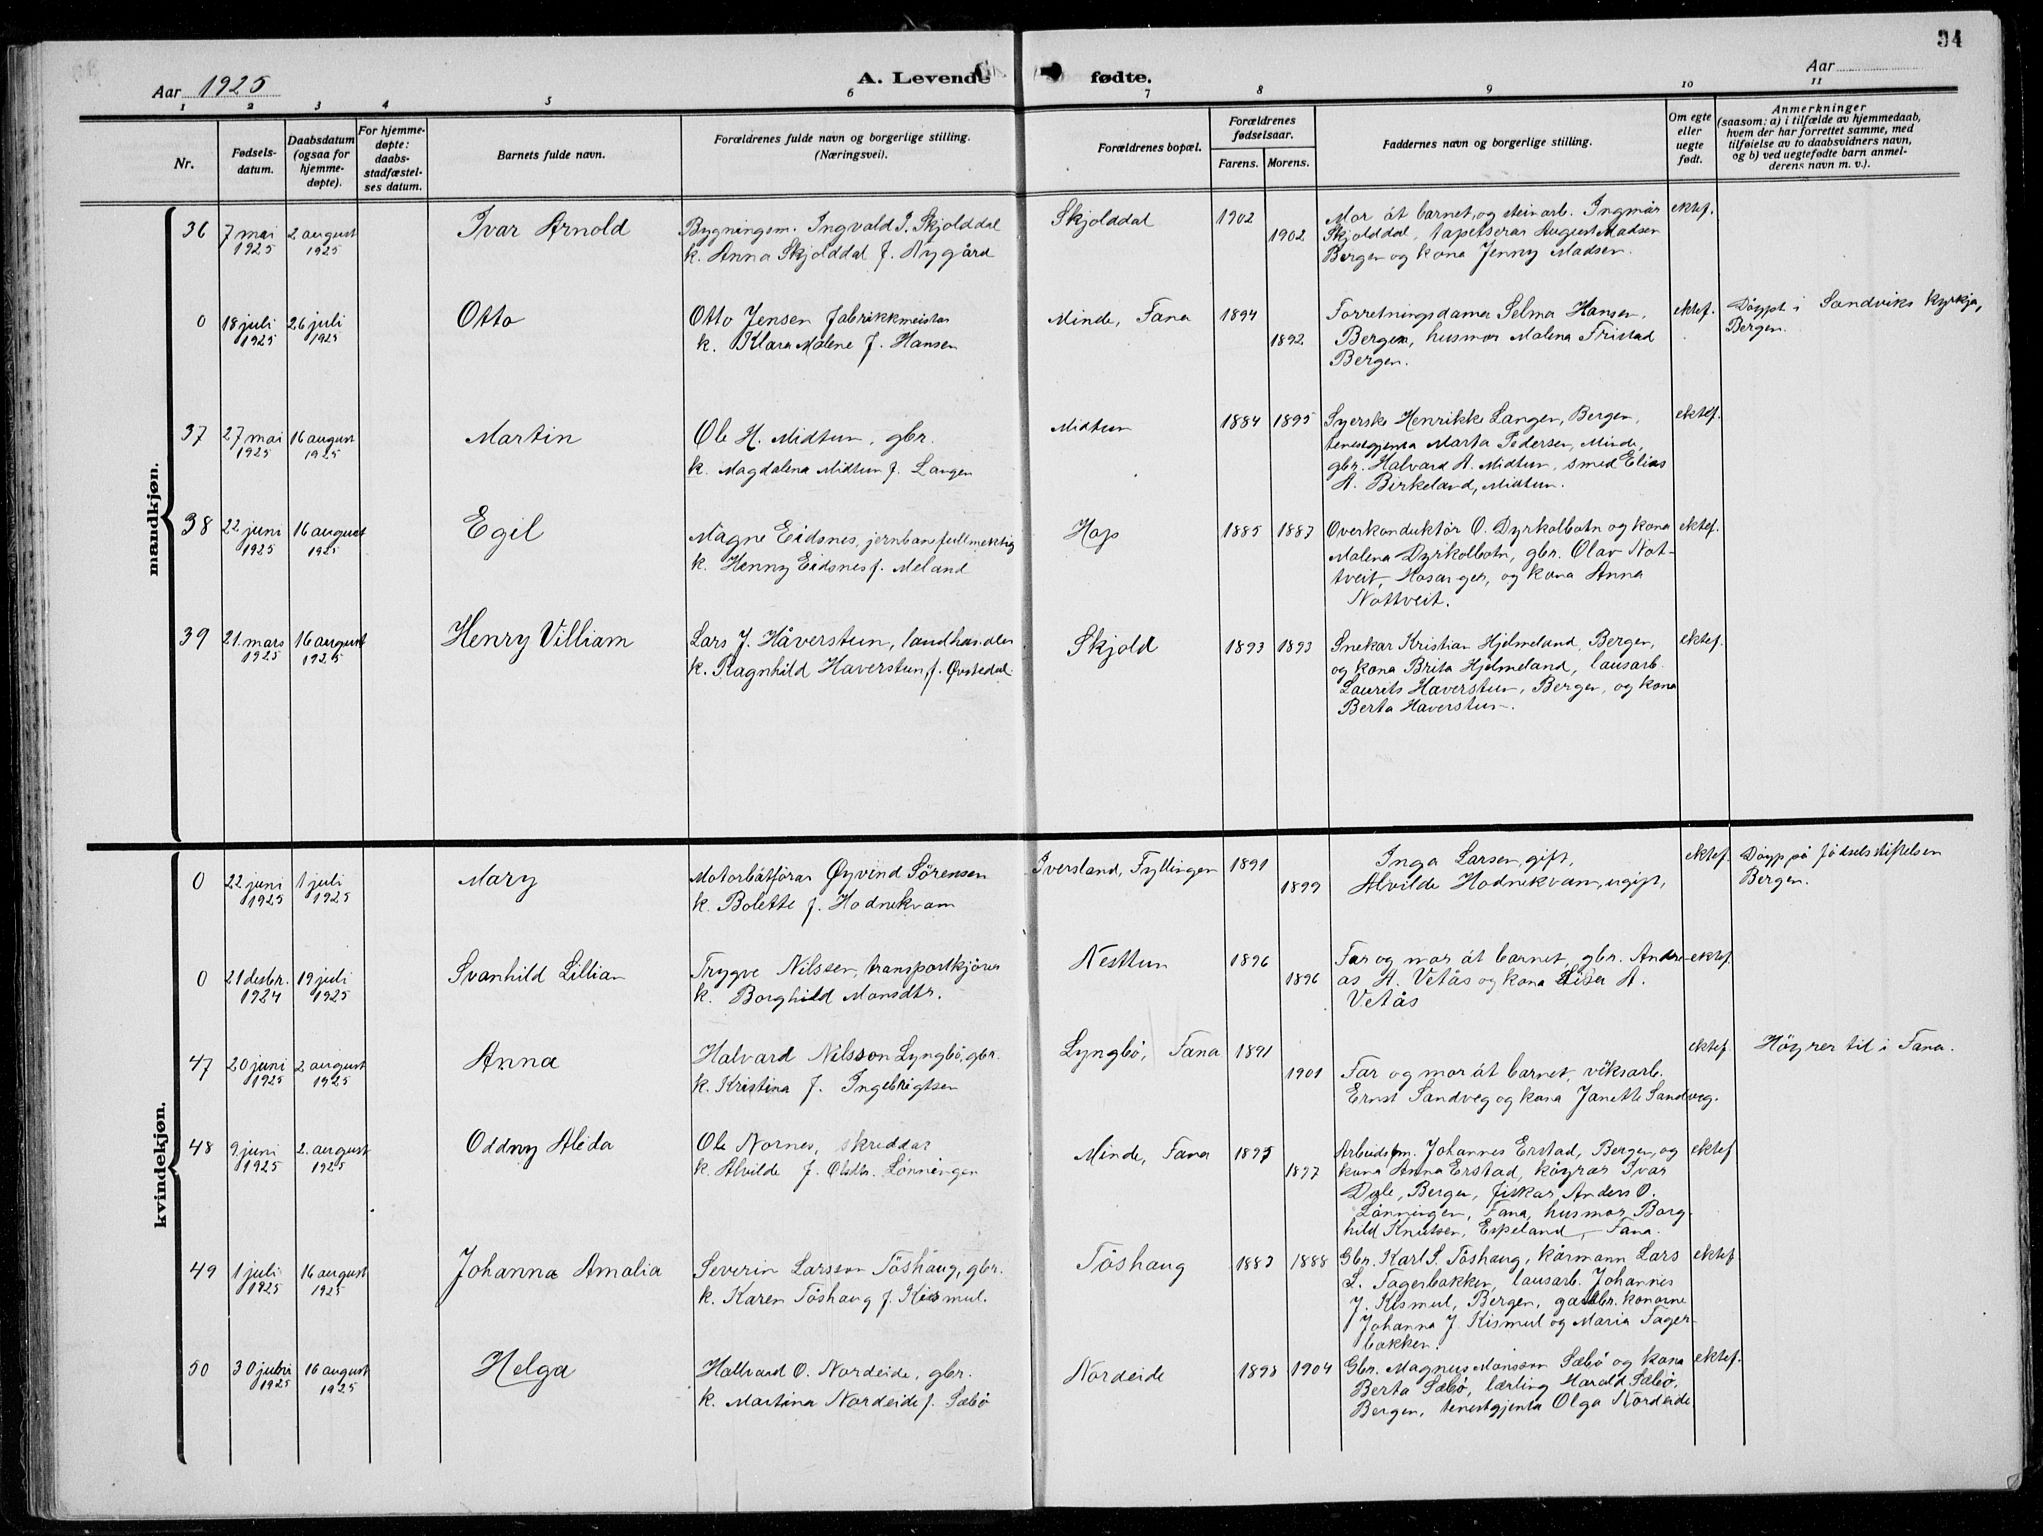 34
Aar 1925
A. Levende fødte.
Aar
1 2 3 4 5 6 7 8 9 10 11
Nr.
Fødsels-
datum.
Daabsdatum
(ogsaa for
hjemme-
døpte).
For hjemme-
døpte:
daabs-
stadfæstel-
ses datum.
Barnets fulde navn.
Forældrenes fulde navn og borgerlige stilling.
(Næringsvei).
Forældrenes bopæl.
Forældrenes
fødselsaar.
Farens. Morens.
Faddernes navn og borgerlige stilling.
Om egte
eller
uegte
født.
Anmerkninger
(saasom: a) i tilfælde av hjemmedaab,
hvem der har forrettet samme, med
tilføielse av to daabsvidners navn,
og b) ved uegtefødte barn anmel-
derens navn m. v.).
mandkjøn.
36 7 mai 1925 2 august 1925 Ivar Arnold
Bygningsm. Ingvald I. Skjolddal
k. Anna Skjolddal f. Nygård
Skjolddal 1902 1902
Mor åt barnet, og steinarb. Ingmar
Skjolddal, tapetserar August Madsen
Bergen og kona Jenny Madsen.
ektef.
0 18 juli 1925 26 juli 1925 Otto
Otto Jensen fabrikkmeister
k. Klara Malene f. Hansen
Minde, Fana 1894 1892
Forretningsdame Selma Hansen,
Bergen, husmor Malena Fristad
Bergen.
ektef.
Döypt i Sandviks kyrkja,
Bergen.
37 27 mai 1925 16 august 1925 Martin
Ole H. Midtun, gbr.
k. Magdalena Midtun f. Langen
Midtun 1884 1895
Syerske Henrikke Langen, Bergen,
tenestgjenta Marta Pedersen, Minde,
gbr. Halvard A. Midtun, smed Elias
A. Birkeland, Midtun.
ektef.
38 22 juni 1925 16 august 1925 Egil
Magne Eidsnes, jernbanefullmektig
k. Henny Eidsnes f. Meland
Hop 1885 1887
Overkonduktör O. Dyrkolbotn og kona
Malena Dyrkolbotn, gbr. Olav Not-
tveit, Hosanger, og kona Anna
Nottveit.
ektef.
39 21. mars 1925 16 august 1925 Henry Villiam
Lars J. Håverstun, landhandlar
k. Ragnhild Haverstun, f. Øvstedal.
Skjold 1893 1893
Snekar Kristian Hjelmeland, Bergen,
og kona Brita Hjelmeland, lausarb.
Laurits Haverstun, Bergen, og kona
Berta Haverstun.
ektef.
kvindekjøn.
0 22 juni 1925 1 juli 1925 Mary
Motorbåtförar Øyvind Sörensen
k. Bolette f. Hodnekvam
Iversland, Fyllingen 1891 1899
Inga Larsen, gift,
Alvilde Hodnekvam, ugift,
ektef.
Döyp på Födselsstiftelsen
Bergen.
0 21 desbr. 1924 19 juli 1925 Svanhild Lillian
Trygve Nilssen, transportkjörer
k. Borghild Monsdtr.
Nesttun 1896 1896
Far og mor åt barnet, gbr. Andre-
as A. Vetås og kona Lisa A.
Vetås
ektef.
47 20 juni 1925 2 august 1925 Anna
Halvard Nilsson Lyngbö, gbr.
k. Kristina f. Ingebrigtsen
Lyngbö, Fana 1891 1901
Far og mor åt barnet, verksarb.
Ernst Sandveg og kona Janette Sandveg.
ektef.
Höyrer til i Fana.
48 9 juni 1925 2. august 1925 Oddny Alida
Ole Nornes, skreddar
k. Alvilde f. Olsdtr. Lönningen
Minde, Fana 1895 1897
Arbeidsm. Johannes Erstad, Bergen, og
kona Anna Erstad, köyrar Ivar
Dale, Bergen, fiskar Anders O.
Lönningen, Fana, husmor Borg-
hild Knutsen, Espeland, Fana.
ektef.
49 1 juli 1925 16 august 1925 Johanna Amalia
Severin Larsson Töshaug, gbr.
k. Karen Töshaug f. Kismul.
Töshaug 1883 1888
Gbr. Karl S. Töshaug, kårmann Lars
L. Fagerbakken, lausarb. Johannes
J. Kismul, Bergen, gardbr. konorne
Johanna J. Kismul og Maria Fager-
bakken.
ektef.
50 30 juni 1925 16 august 1925 Helga
Hallvard O. Nordeide, gbr.
k. Martina Nordeide f. Sæbö
Nordeide 1898 1904
Gbr. Magnus Monsson Sæbö og kona
Berta Sæbö, lærling Harald Sæbö,
Bergen, tenestgjenta Olga Nordeide
ektef.